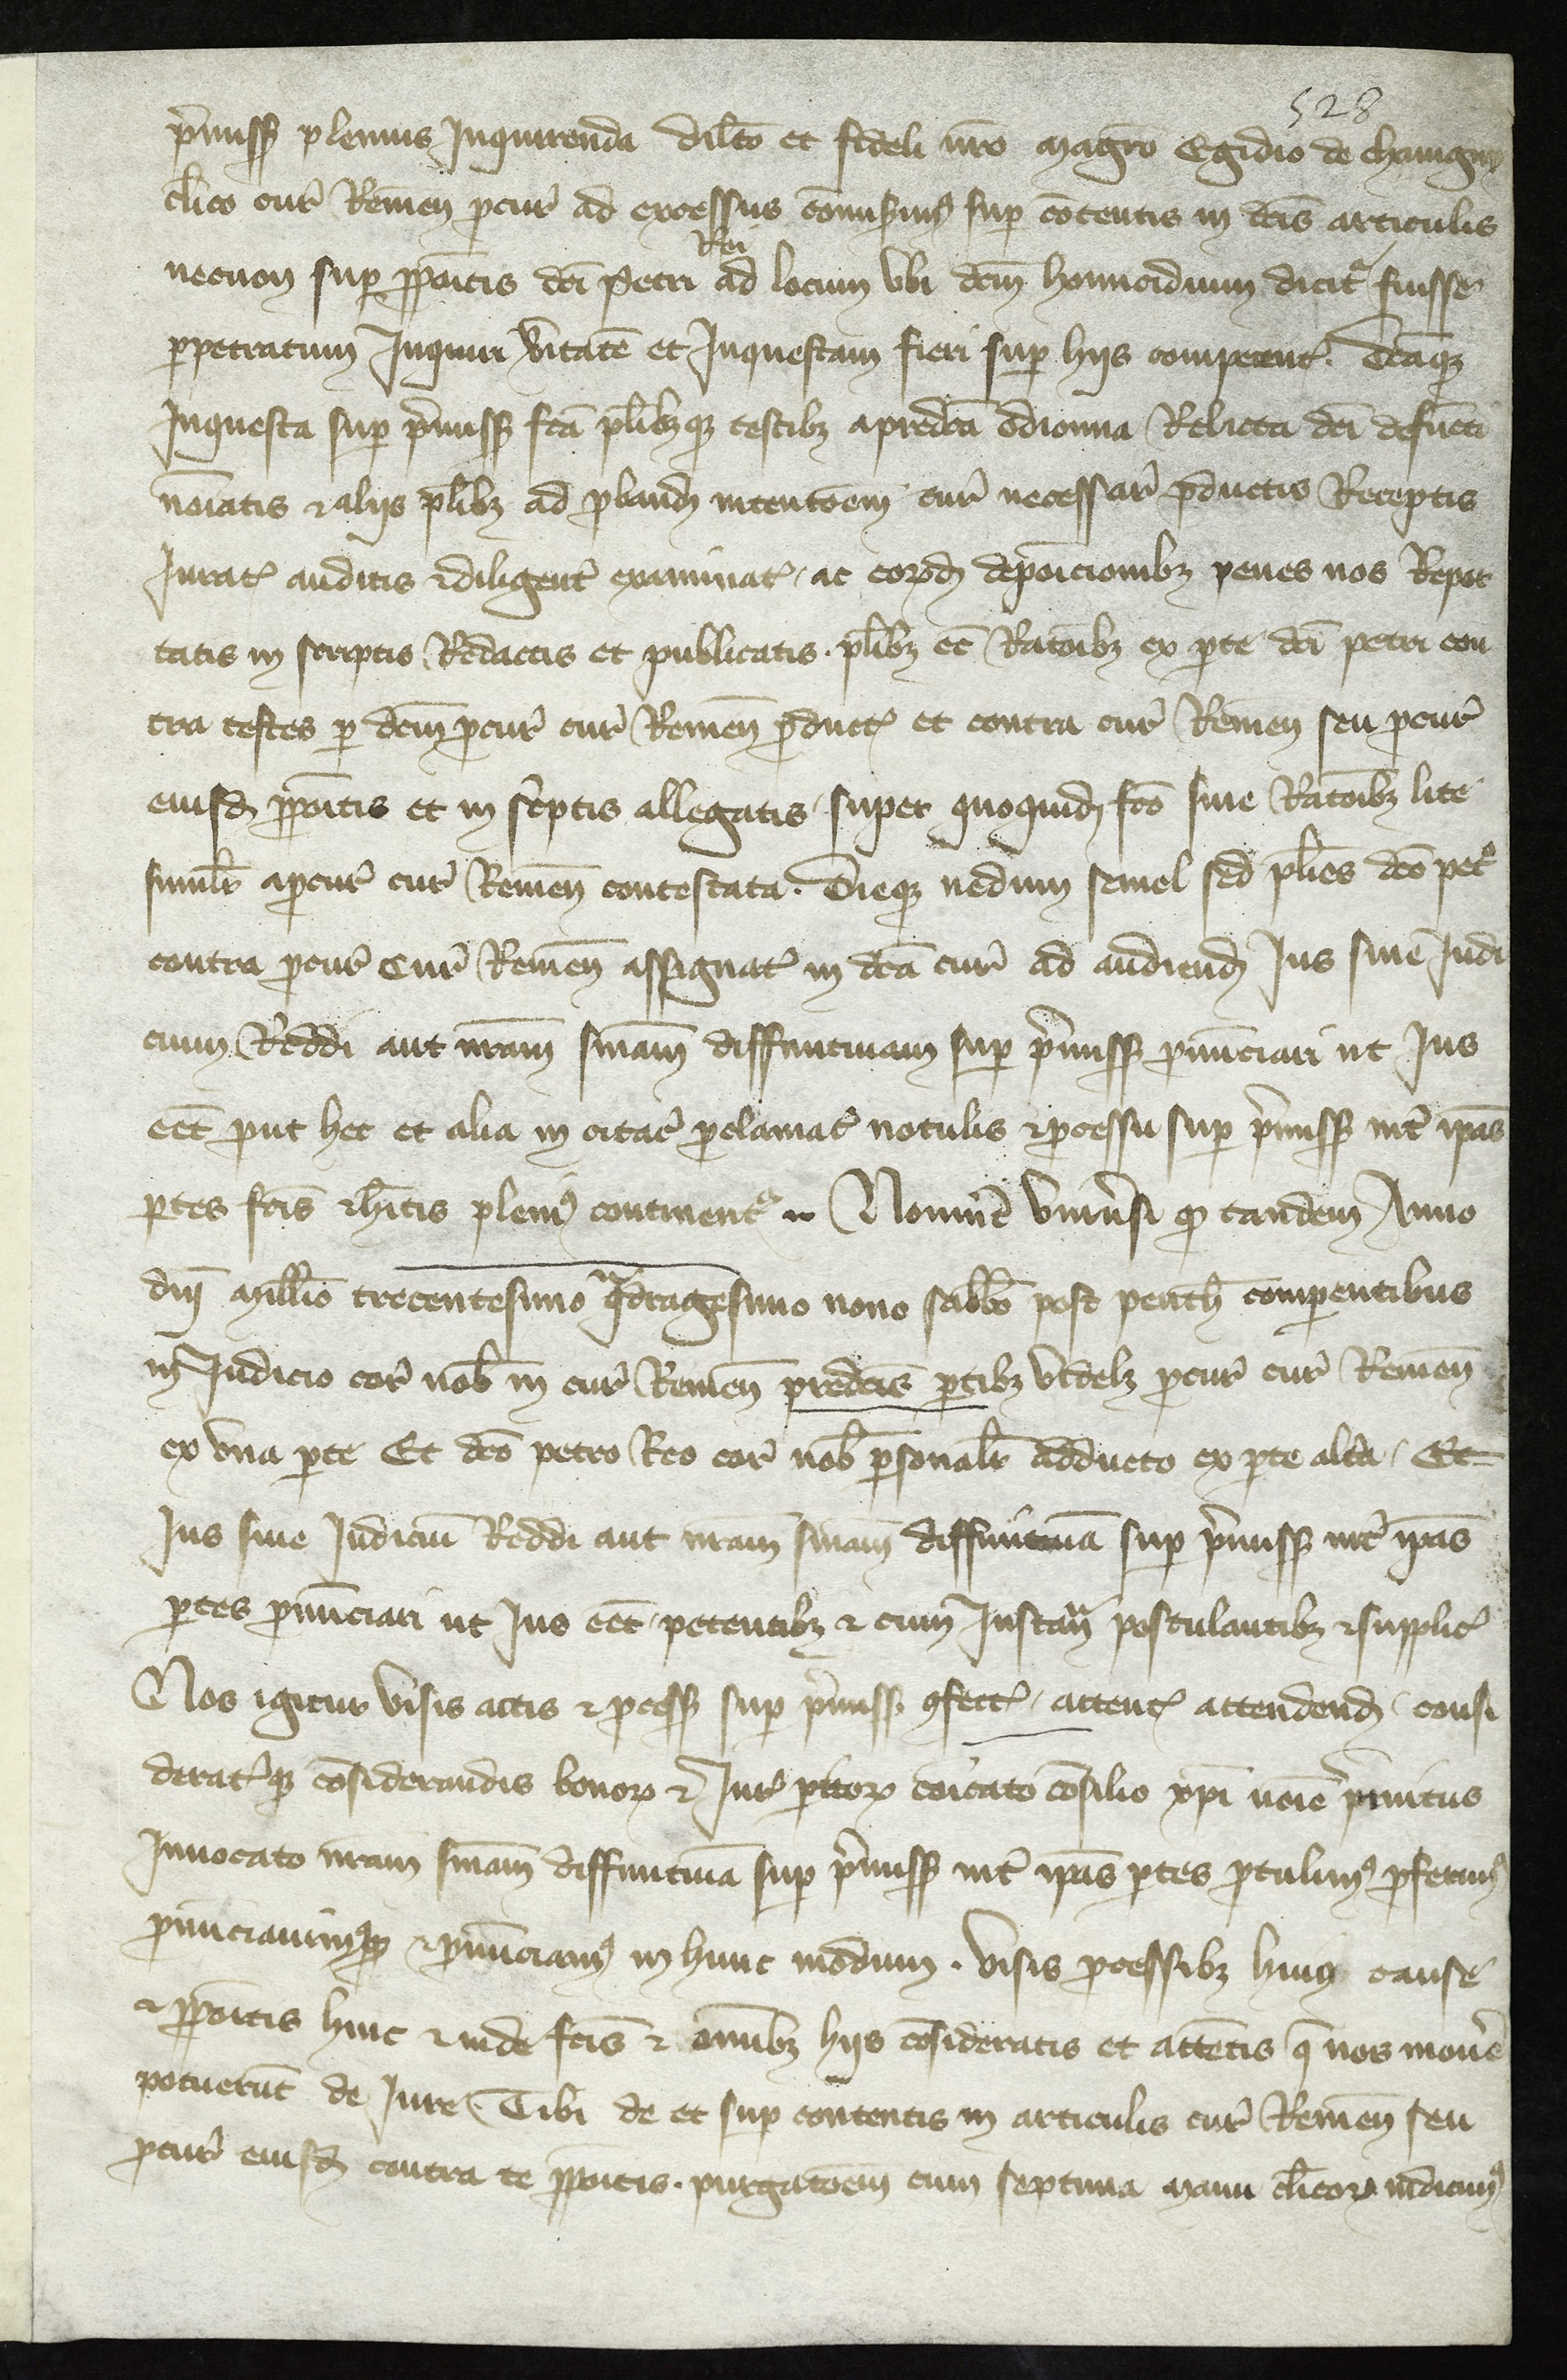 528
p̄miss plenius Inquirenda dil̄co et fideli nr̄o magr̄o Egidio de chamgny
cl̄ico cur̄ Remeñ pcur̄ ad excessus cōmisimꝰ sup cōtentis in dcīs articulis
necnon sup pp̄oitis dcī Petri Rei ad locum vbi dcm̄ homicidium dicit᷑ fuisse
ꝑpetratum Inquiri v̄itatē et Inquestam fieri sup hiis comperent᷑. Dcāqꝫ
Inquesta sup p̄miss fcā pl̄ibꝫqꝫ testibꝫ a predcā Odionna Relicta dcī defūcti
noīatis ⁊ aliis pl̄ibꝫ ad ꝓband intentoēm cur̄ necessar̄ ꝓductis Receptis
Jurat᷑ auditis ⁊ diligent᷑ examinat᷑, ac eoꝝd depoicionibꝫ penes nos Repor
tatis in scriptis Redactis et publicatis. pl̄ibꝫ ec̄ Ratoībꝫ ex ꝑte dcī petri con
tra testes ꝑ dcm̄ pcur̄ cur̄ Remeñ ꝓduct᷑ et contra cur̄ Remeñ seu pcur̄
eiusd pp̄oitis et in sc̄ptis allegatis super quoquid fcō siue Ratoībꝫ lite
simil̄r a pcur̄ cur̄ Remeñ contestata. Dieqꝫ nedum semel sed pl̄ies dcō pet᷑o
contra pcur̄ Cur̄ Remeñ assignat᷑ in dcā cur̄ ad audiend Jus siue Judi
cium Reddi aut nr̄am sn̄iam diffinitiuam sup p̄miss pnūciari ut Jus
eēt put hec et alia in citac̄ pclamat᷑ notulis ⁊ pcessu sup p̄miss int᷑ ip̄as
ꝑtes fcīs ⁊ hītis pleniꝰ continent᷑ Nouit̄ vniūsi qꝫ tandem Anno
dnī Mill̄io trecentesimo qᵃdragesimo nono sabb̄o post penth̄ comꝑentibus
in Judicio cor̄ nob̄ in cur̄ Remeñ predcīs ꝑtibꝫ videlꝫ pcur̄ cur̄ Remeñ
ex vna ꝑte Et dcō petro Reo cor̄ nob̄ ꝑsonal̄r adducto ex ꝑte alt᷑a. Et
Jus siue Judiciū Reddi aut nr̄am sn̄iam diffinitiuā sup p̄miss int᷑ ip̄as
ꝑtes pnūciari ut Jus eēt petentibꝫ ⁊ cum Instañ postulantibꝫ ⁊ supplic̄
Nos igitur visis actis ⁊ pcess sup p̄miss ꝯfect᷑, attent᷑ attendend consi
derat᷑qꝫ cōsiderandis bonoꝝ ⁊ Jur̄ ꝑitoꝝ cōicato cōsilio xp̄i noīe p̄mitus
Inuocato nr̄am sn̄iam diffinitiuā sup p̄miss int᷑ ip̄as ꝑtes ꝓtulimꝰ ꝓferimꝰ
pnūciauimꝰqꝫ ⁊ pnūciamꝰ in hunc modum. visis pcessibꝫ huiꝰ cause
⁊ pp̄oitis hinc ⁊ inde fcīs ⁊ omībꝫ hiis cōsideratis et attētis q̄ nos mouē
potuerūt de Jure. Tibi de et sup contentis in articulis cur̄ Remeñ seu
pcur̄ eiusd contra te pp̄oitis. purgatoēm cum septima manu cl̄icoꝝ indicimꝰ